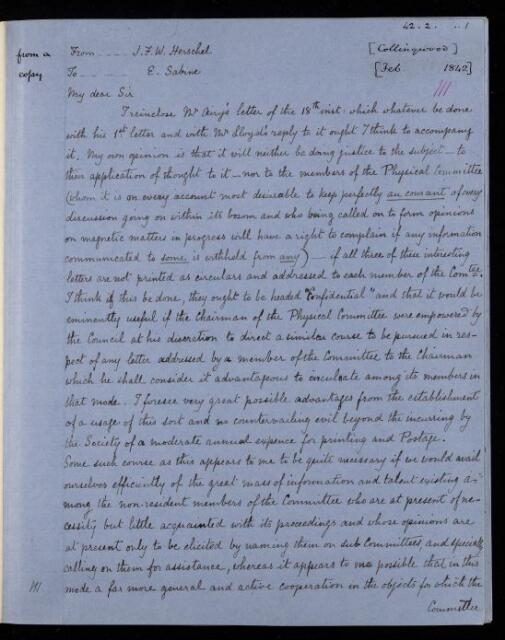 42.2...1
from a
copy
From J.F.W. Herschel
To E. Sabine
[Collingwood]
[Feb 1842]
111
My dear Sir
I reinclose Mr Airy's letter of the 18th inst: which whatever be done
with his 1st letter and with Mr Lloyd's reply to it ought I think to accompany
it. My own opinion is that it will neither be doing justice to the subject – to
their application of thought to it – nor to the members of the Physical Committee
(whom it is on every account most desirable to keep perfectly au courant of every
discussion going on within its bosom and who being called on to form opinions
on magnetic matters in progress will have a right to complain if any information
communicated to some is withheld from any) – if all three of these interesting
letters are not printed as circulars and addressed to each member of the Comtee.
I think if this be done, they ought to be headed "Confidential" and that it would be
eminently useful if the Chairman of the Physical Committee were empowered by
the Council at his discretion to direct a similar course to be pursued in res-
pect of any letter addressed by a member of the Committee to the Chairman
which he shall consider it advantageous to circulate among its members in
that mode. I foresee very great possible advantages from the establishment
of a usage of this sort and no countervailing evil beyond the incurring by
the Society of a moderate annual expence for printing and Postage.
Some such course as this appears to me to be quite necessary if we would avail
ourselves efficiently of the great mass of information and talent existing a-
mong the non-resident members of the Committee who are at present of ne-
cessity but little acquainted with its proceedings and whose opinions are
at present only to be elicited by naming them on sub Committees and specially
calling on them for assistance, whereas it appears to me possible that in this
mode a far more general and active cooperation in the objects for which the
Committee